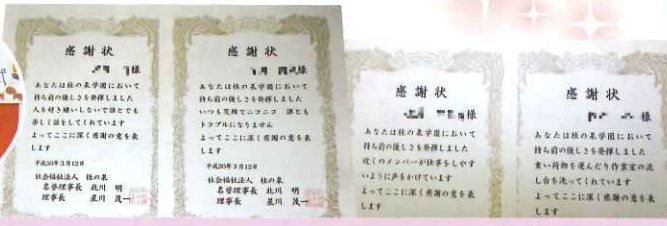 感謝状
様
あなたは桂の泉学園において
持ち前の優しさを発揮しました
人を好き嫌いしないで誰とでも
楽しく話をしてくれています
よってここに深く感謝の意を表
します
平成30年3月12日
社会福祉法人 桂の泉
名誉理事長 北川 明
理事長 星川 茂一
感謝状
様
あなたは桂の泉学園において
持ち前の優しさを発揮しました
いつも笑顔でニコニコ 誰とも
トラブルになりません
よってここに深く感謝の意を表
します
平成30年3月12日
社会福祉法人 桂の泉
名誉理事長 北川 明
理事長 星川 茂一
感謝状
様
あなたは桂の泉学園において
持ち前の優しさを発揮しました
近くのメンバーが仕事をしやす
いように声をかけています
よってここに深く感謝の意を表
します
感謝状
様
あなたは桂の泉学園において
持ち前の優しさを発揮しました
重い荷物を運んだり作業室の流
し台を洗ってくれています
よってここに深く感謝の意を表
します